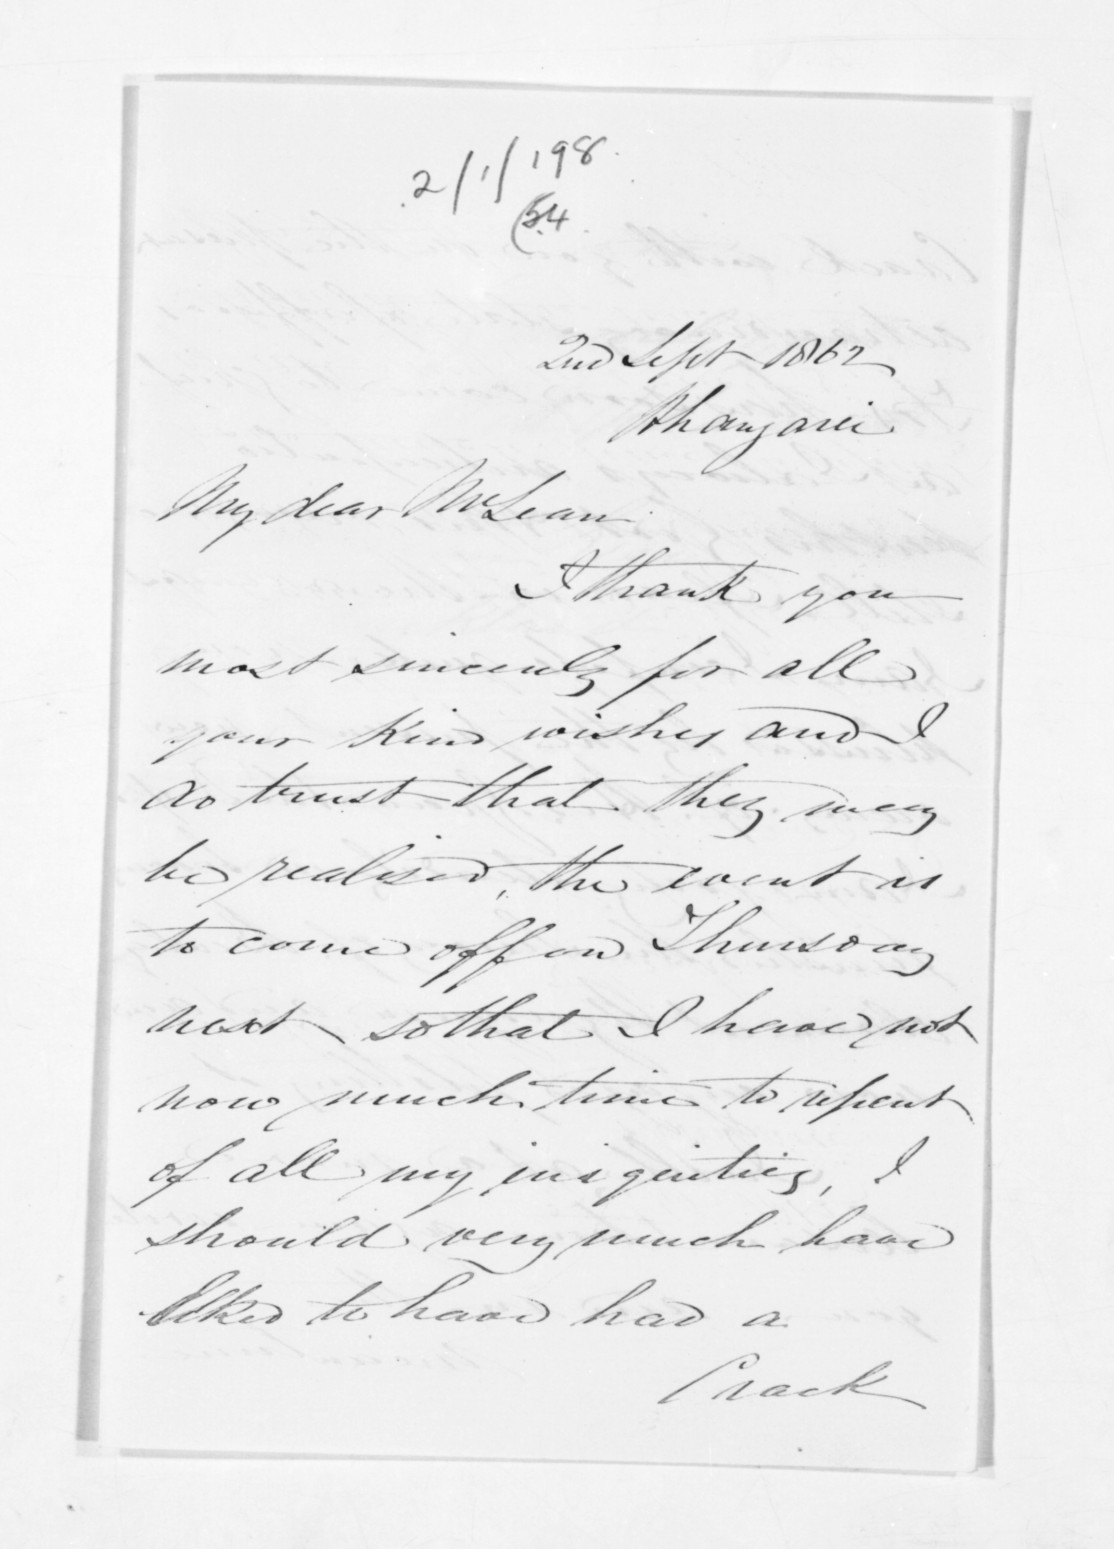 2/1/198
(54
2nd Sept 1862
Whangarei
My dear McLean
I thank you
most sincerely for all
your kind wishes and I
do trust that they may
be realised, the event is
to come off on Thursday
next so that I have not
now much time to repent
of all my iniquities, I
should very much have
liked to have had a
Crack